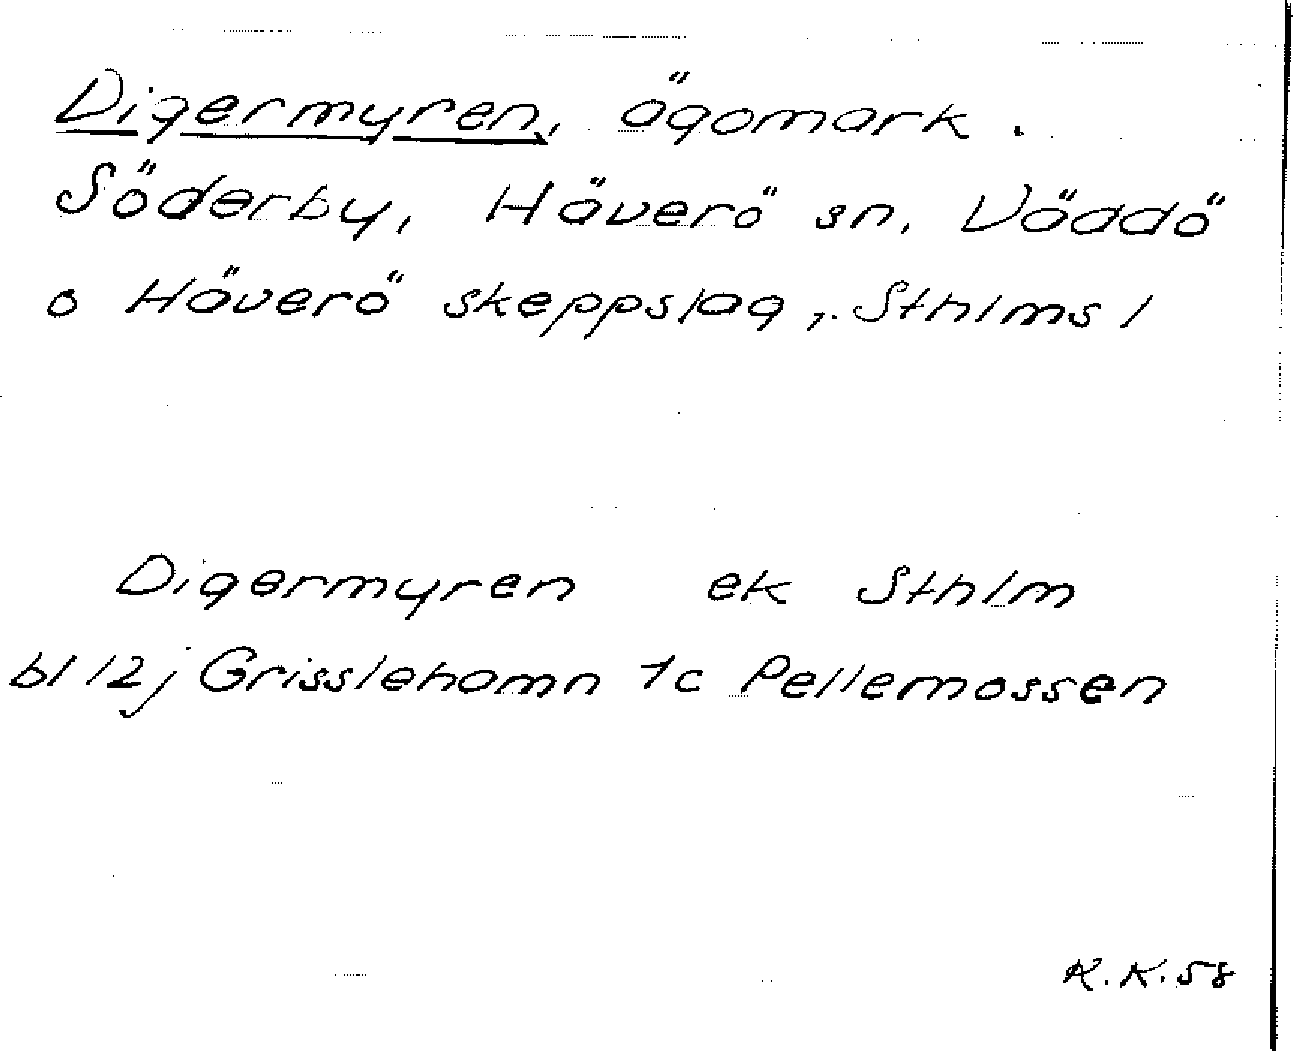 Digermyren, ägomark.
Söderby, Häverö sn, Väddö
o Häverö skeppslag, Sthlms l
Digermyren ek Sthlm
bl 12j Grisslehamn 1c Pellemossen
R.K.58